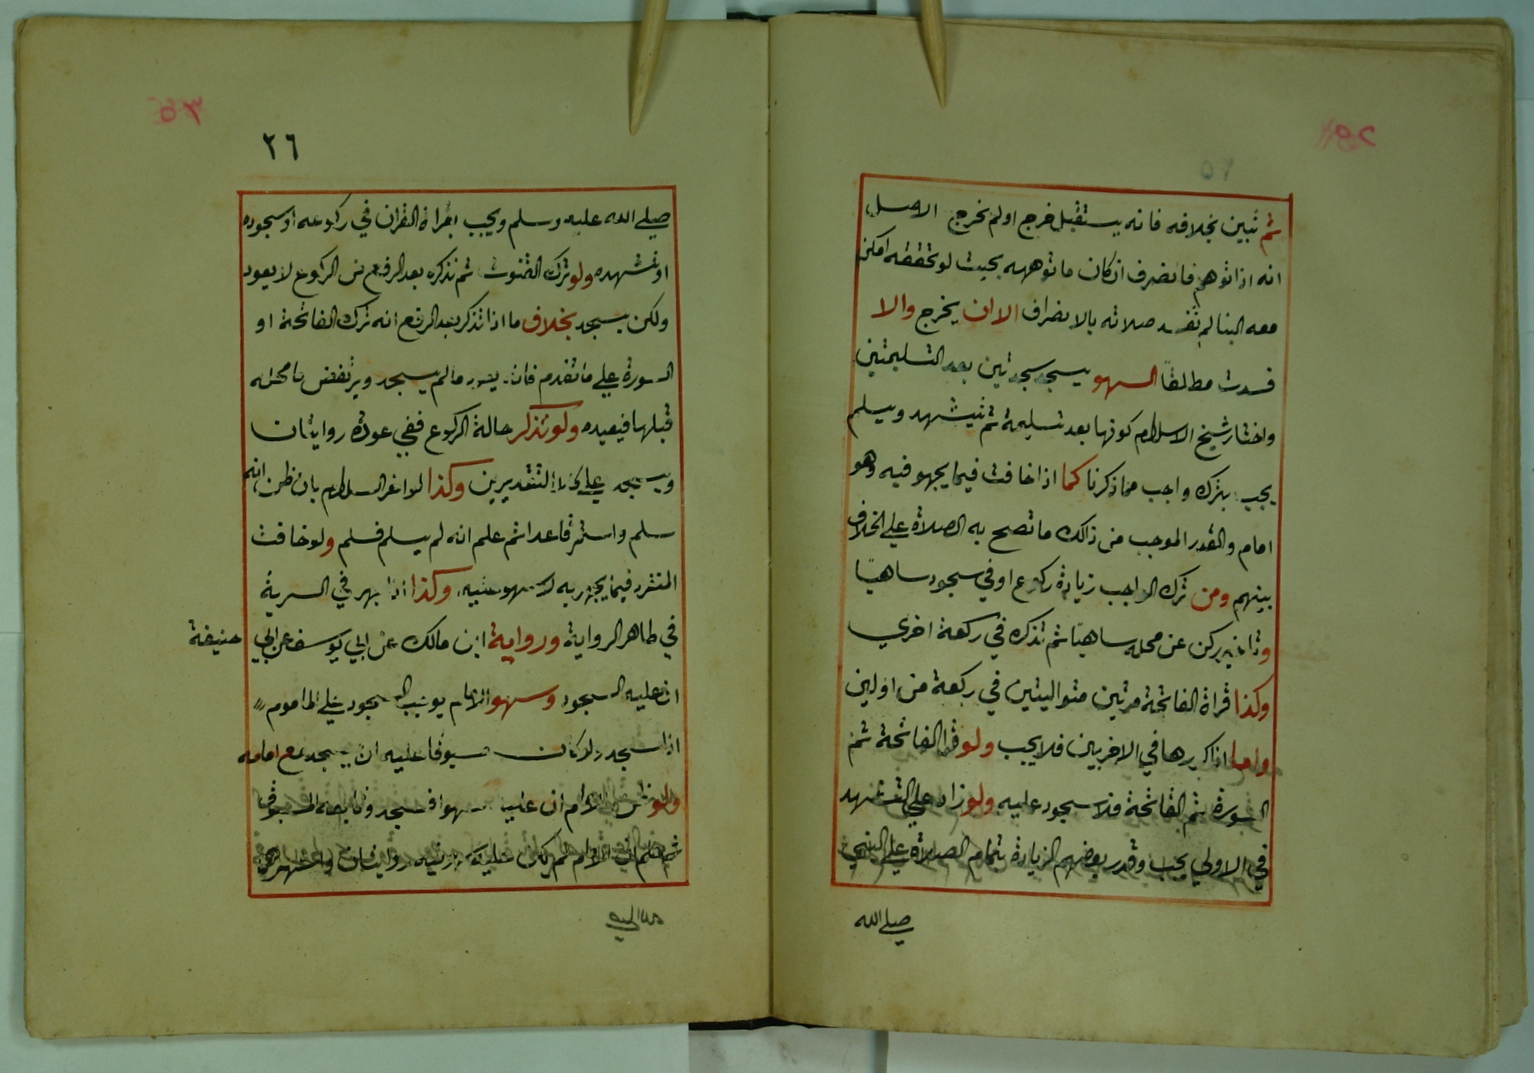 ثم تبين بخلافه فانه يستقبل خرج اولم يخرج الاصل
انه اذا توهم فانصرف ان كان ما توهمه بحيث لو تحققه امكن
معه البنا لم تفسد صلاته بالانصراف الا ان يخرج والا
فسدت مطلقا السهو يسجد سجدتين بعد التسليمتين
واختار شيخ الاسلام كونها بعد تسليمة ثم يتشهد ويسلم
يجب بترك واجب مما ذكرنا كما اذا خافت فيما يجهر فيه وهو
امام والقدر الموجب من ذالك ما تصح به الصلاة على الخلاف
بينهم ومن ترك الواجب زيادة ركوع اوفي سجود ساهيا
ركن عن محله ساهيا ثم تذكره في ركعة اخري
وكذا قراة الفاتحة مرتين متواليتين في ركعة من اولين
واما اذا كررها في الاخريين فلا يجب ولو قرا الفاتحة ثم
السورة ثم الفاتحة فلا سجود عليه ولو زاد علي التشهد
في الاولي يجب وقدر بعضهم الزيادة بتمام الصلاة علي النبي
صلي الله
٢٦
صلي الله عليه وسلم ويجب بقراة القران في ركوعه او سجوده
او تشهده ولو ترك القنوت ثم تذكره بعد الرفع من الركوع لا يعود
ولكن يسجد بخلاف ما اذا تذكر بعد الرفع انه ترك الفاتحة او
السورة علي ما تقدم فانه يعود ما لم يسجد ويرتفض ما محله
قبلها فيعيده ولو تذكر حالة الركوع ففي عوده روايتان
ويسجد علي كلا التقديرين وكذا لو اخر السلام بان ظن انه
سلم واستمر قاعدا ثم علم انه لم يسلم فسلم ولو خافت
المنفرد فيما يجهر به لا سهو عليه وكذا اذا جهر في السرية
في ظاهر الرواية ورواية ابن مالك عن ابي يوسف عن ابي حنيفة
ان عليه السجود وسهو الامام يوجب السجود علي الماموم
اذا سجد ولو كان مسبوقا عليه ان يسجد مع امامه
ولو ظن الامام ان عليه سهوا فسجد وتابعه المسبوق
ثم علم ان الامام لم يكن عليه